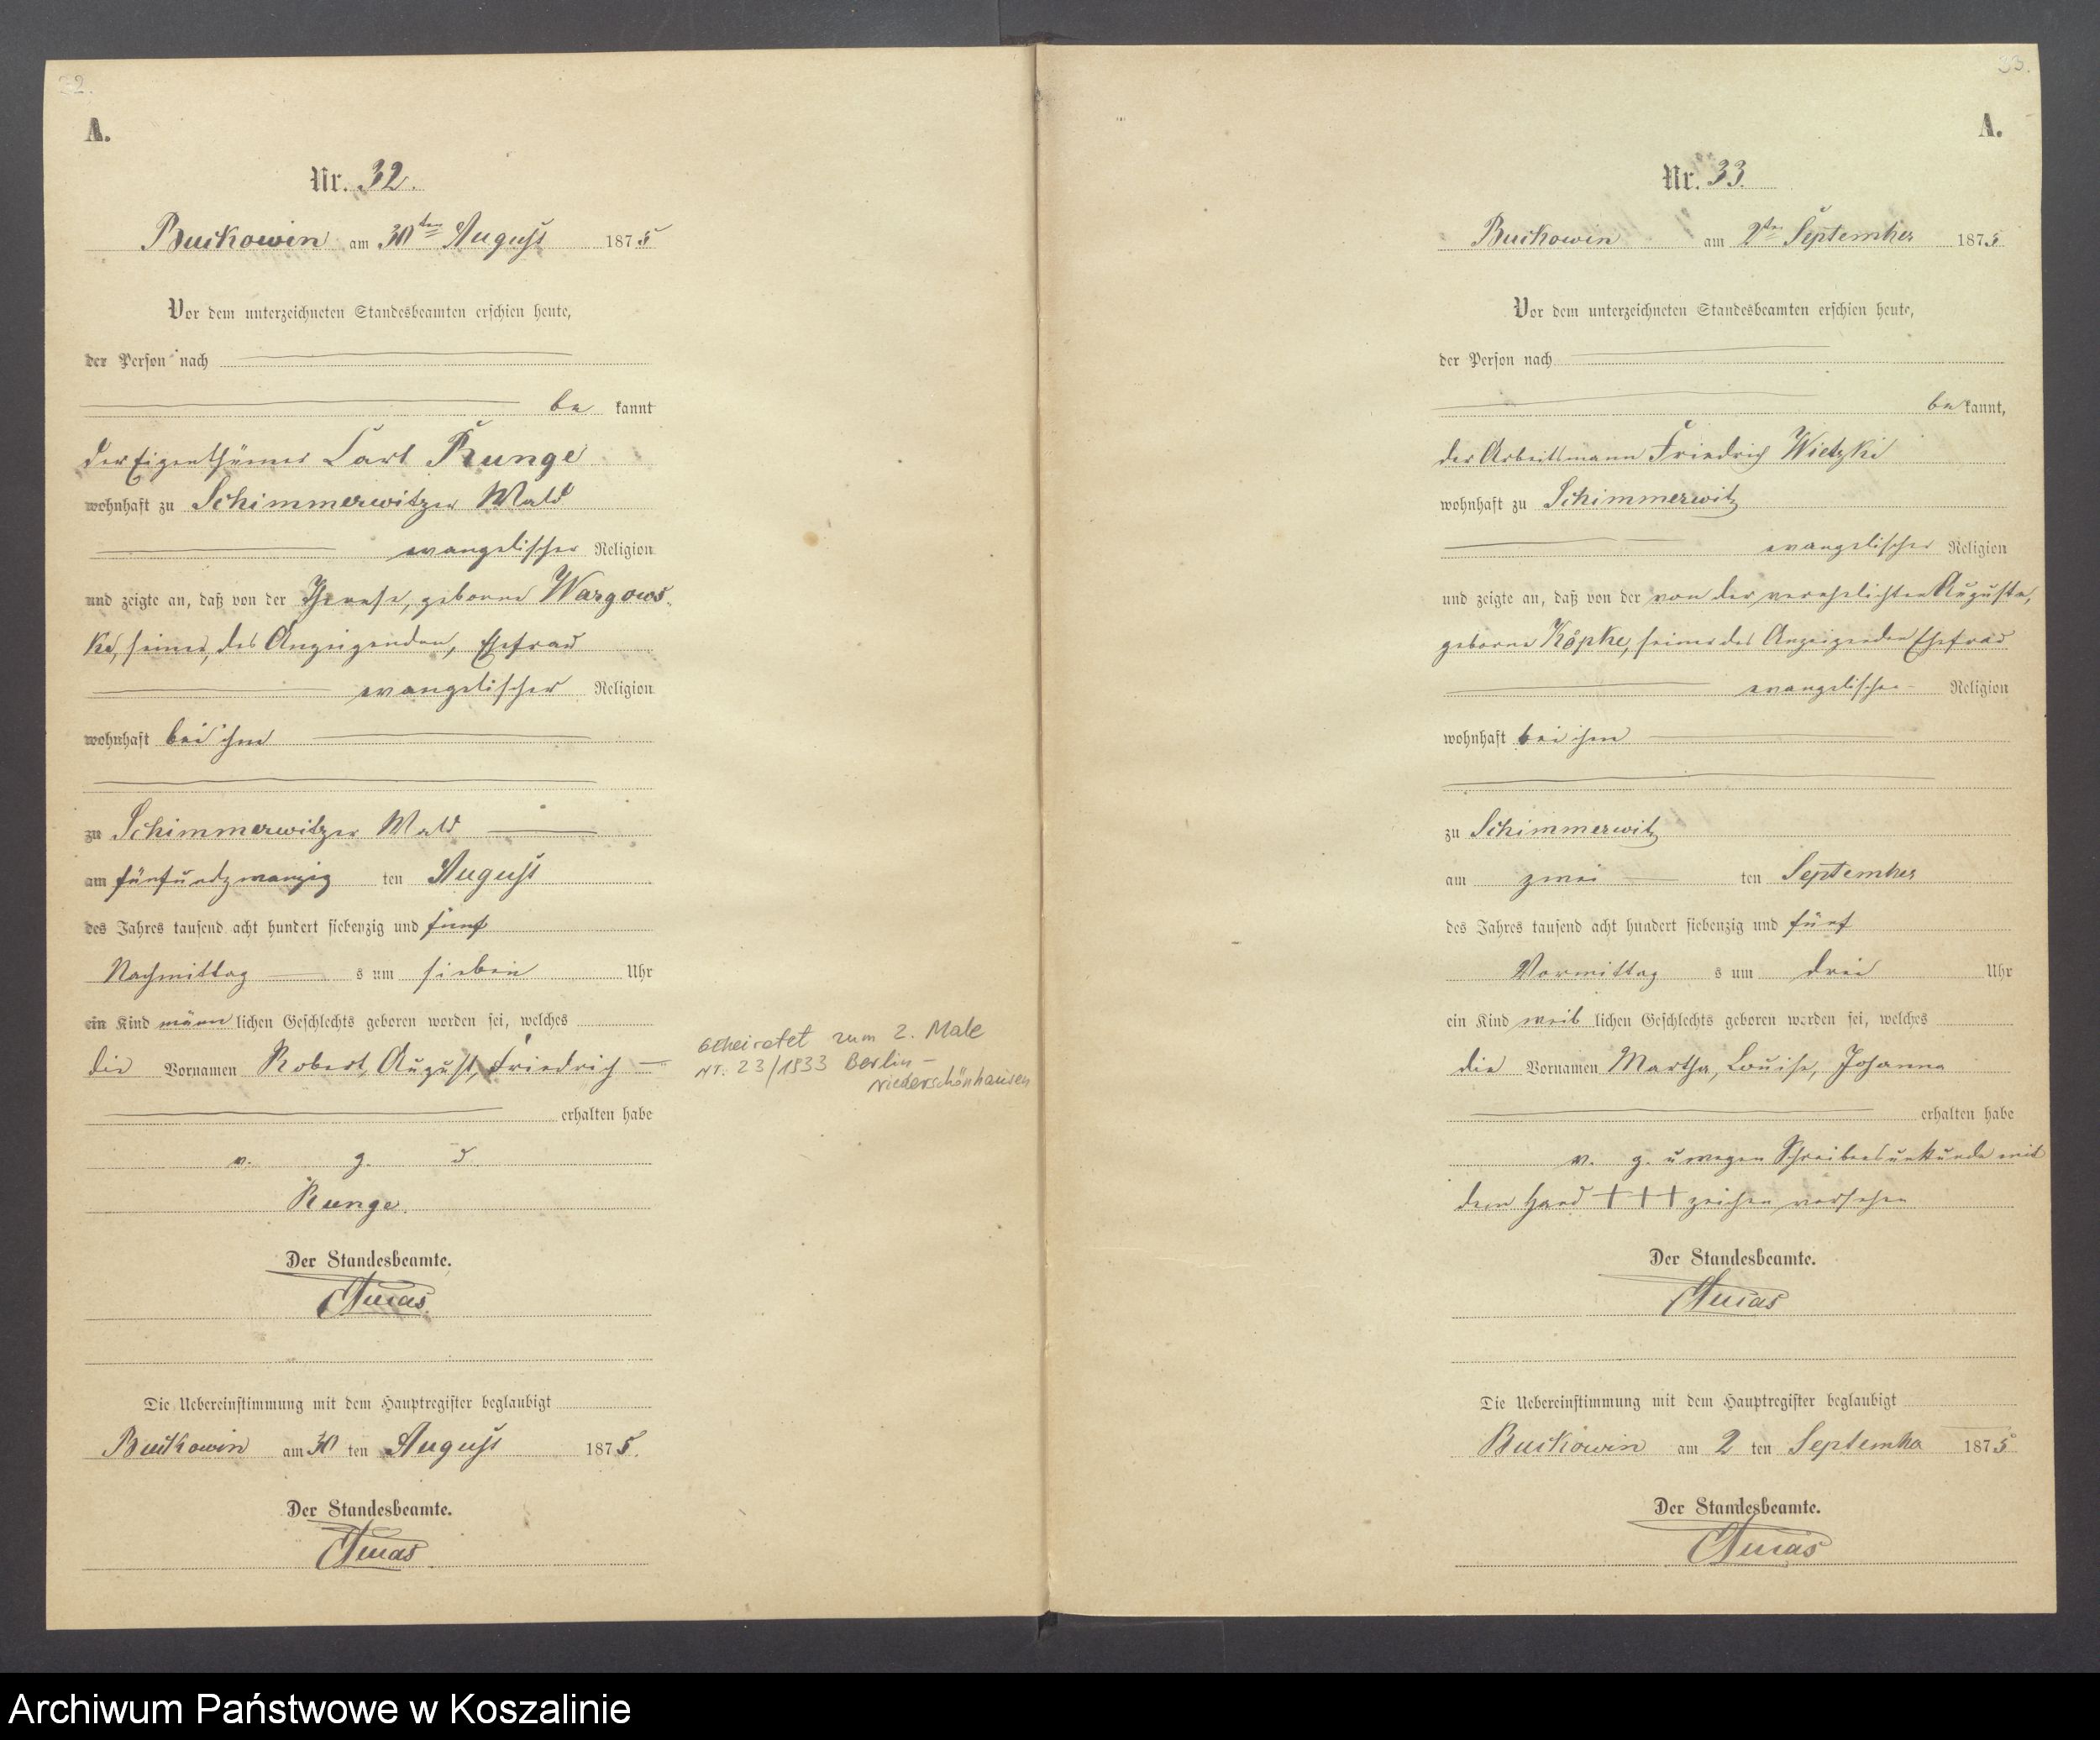 22.
A.
Nr. 32.
Buckowin am 30ten August 1875
Vor dem unterzeichneten Standesbeamten erschien heute,
der Person nach
be kannt
der Eigenthümer Carl Runge
wohnhaft zu Schimmerwitzer Wald
evangelischer Religion
und zeigte an, daß von der Therese, geborne Wargows-
ke, seiner, des Anzeigenden, Ehefrau
evangelischer Religion
wohnhaft bei ihm
zu Schimmerwitzer Wald
am fünfundzwanzig ten August
des Jahres tausend acht hundert siebenzig und fünf
Nachmittag s um sieben Uhr
ein Kind männ lichen Geschlechts geboren worden sei, welches
die Vornamen Robert, August, Friedrich
erhalten habe
v. g. u.
Runge.
Der Standesbeamte.
Die Uebereinstimmung mit dem Hauptregister beglaubigt
Buckowin am 30 ten August 1875.
Der Standesbeamte.
Geheiratet zum 2. Male
Nr. 23/1933 Berlin-
Niederschönhausen
33.
A.
Nr. 33.
Buckowin am 2ten September 1875
Vor dem unterzeichneten Standesbeamten erschien heute,
der Person nach
be kannt,
der Arbeitsmann Friedrich Wietzke
wohnhaft zu Schimmerwitz
evangelischer Religion
und zeigte an, daß von der von der verehelichten Auguste,
geborne Köpke, seiner des Anzeigenden Ehefrau
evangelischer Religion
wohnhaft bei ihm
zu Schimmerwitz
am zwei ten September
des Jahres tausend acht hundert siebenzig und fünf
Vormittag s um drei Uhr
ein Kind weib lichen Geschlechts geboren worden sei, welches
die Vornamen Martha, Louise, Johanna
erhalten habe
v. g. u wegen Schreibensunkunde mit
dem Hand +++ zeichen versehen
Der Standesbeamte.
Die Uebereinstimmung mit dem Hauptregister beglaubigt
Buckowin am 2 ten September 1875
Der Standesbeamte.
Archiwum Państwowe w Koszalinie